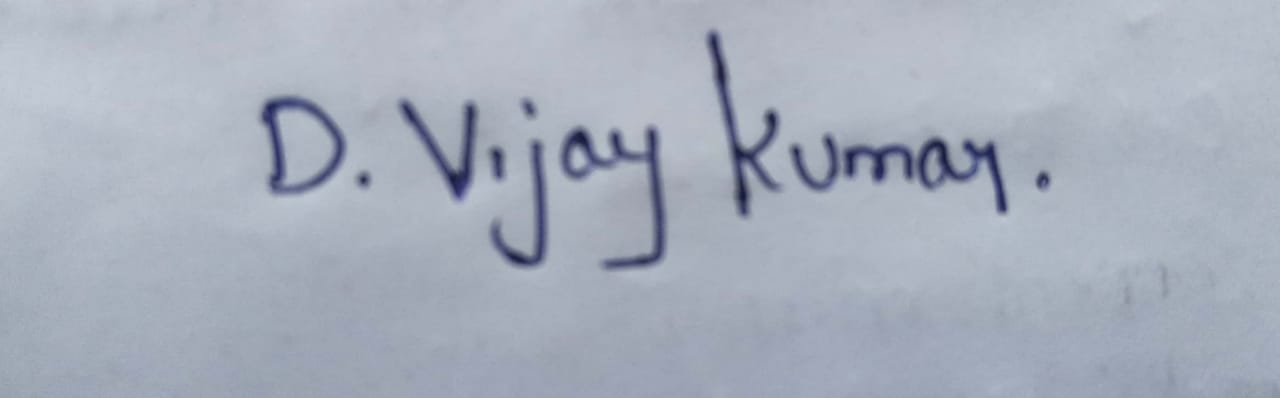 D. Vijay Kumar.